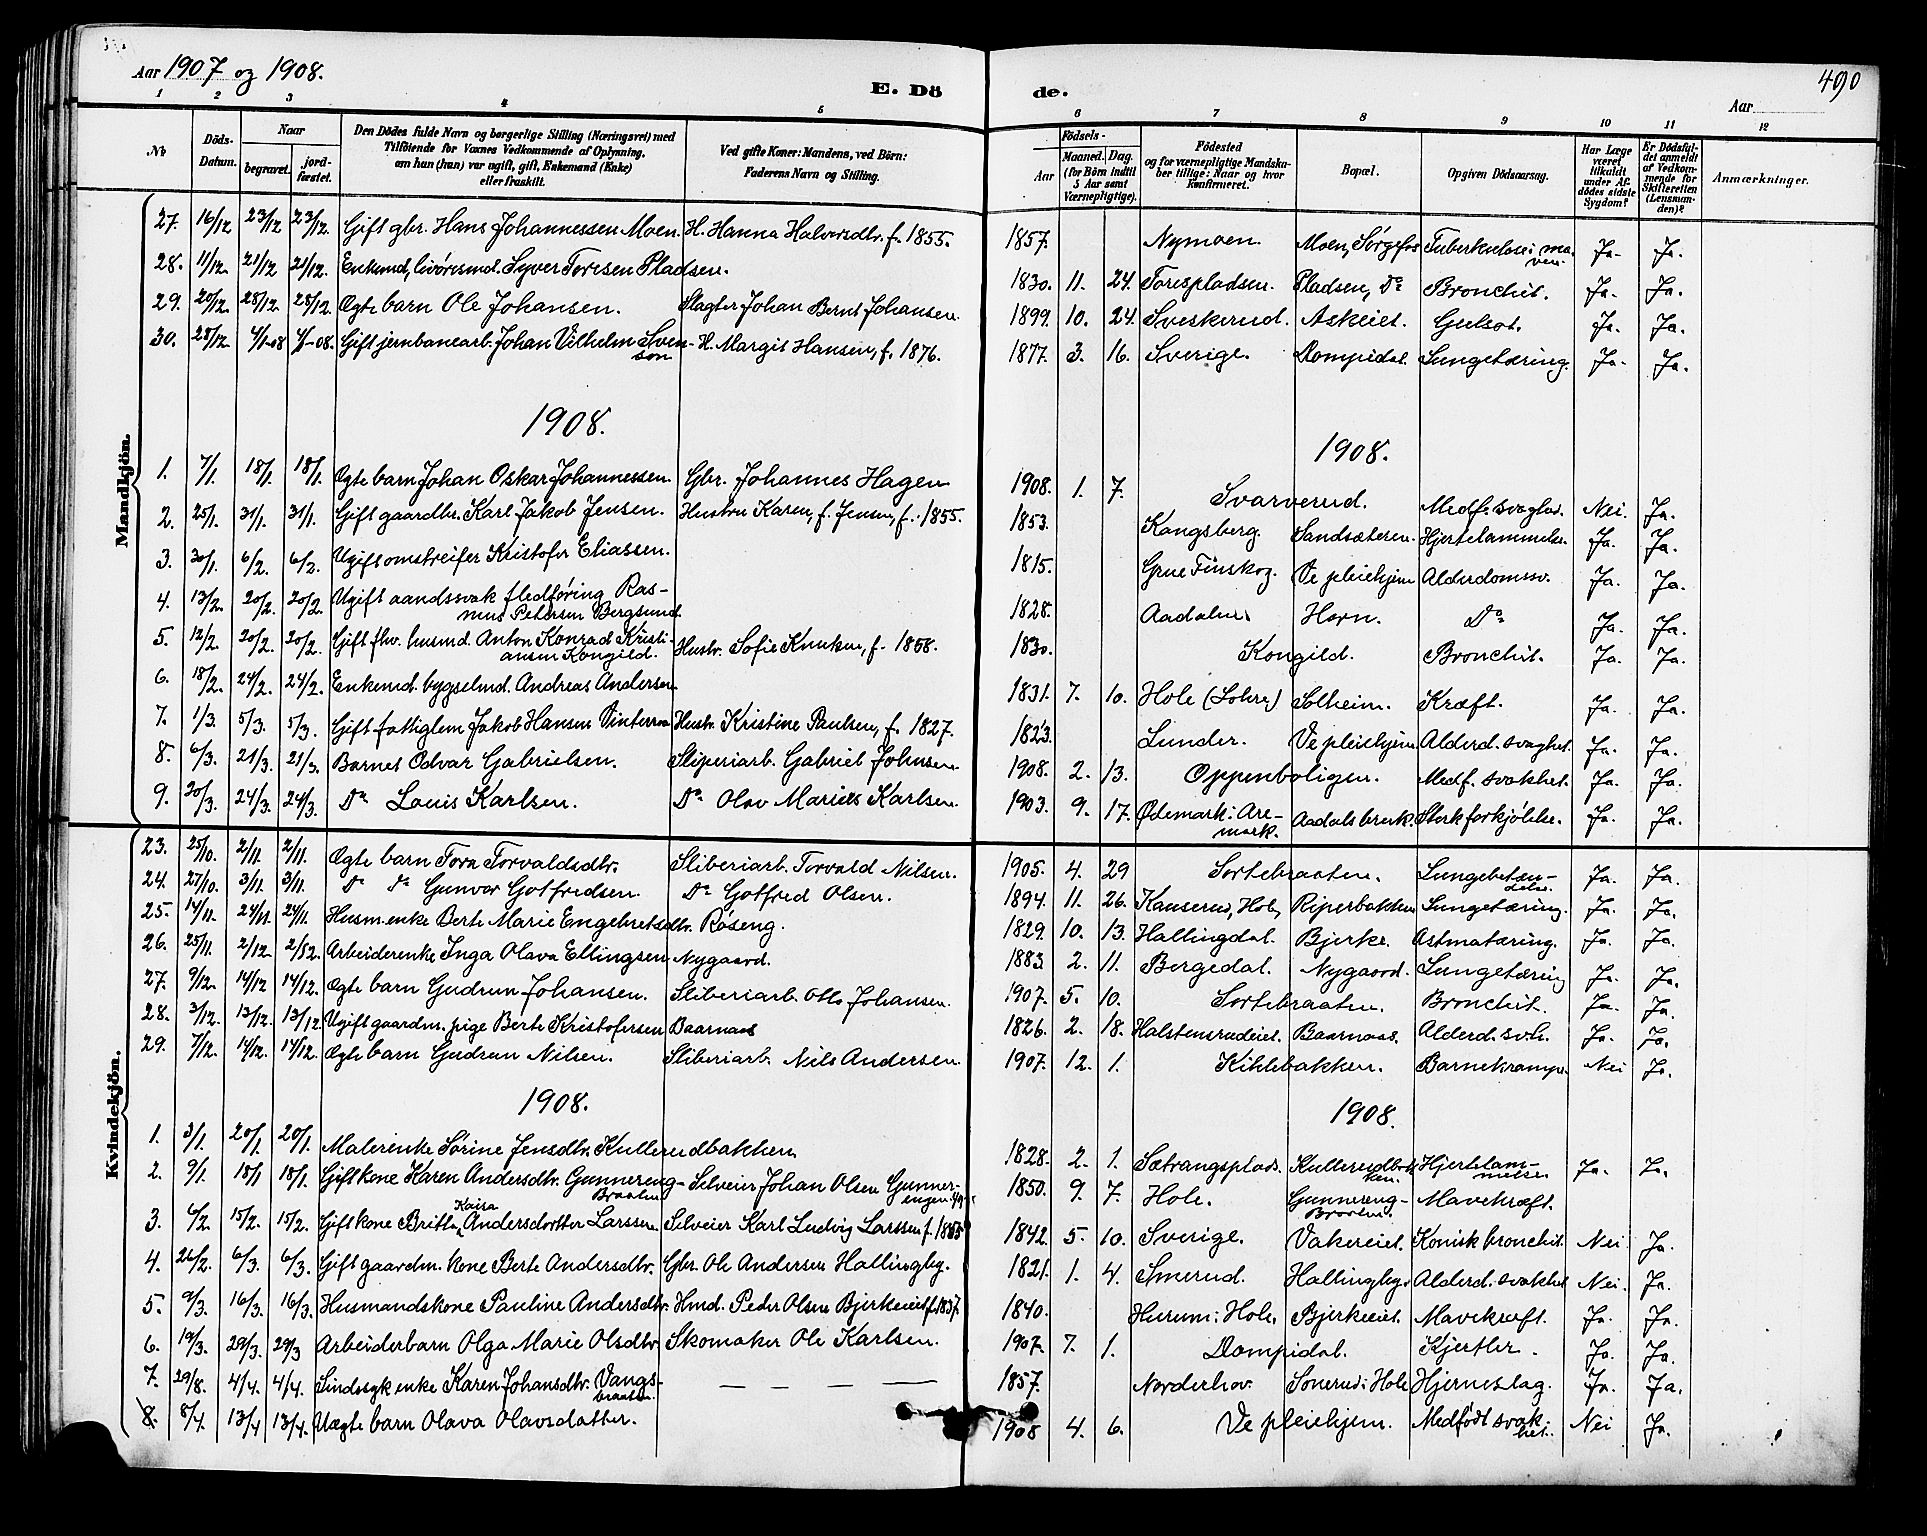 Aar 1907 og 1908.
E. Dö de.
Aar
490
1 2 3 4 5 6 7 8 9 10 11 12
No
Döds-Datum.
Naar
begravet.
jord-fæstet.
Den Dödes fulde Navn og borgerlige Stilling (Næringsvei) med
Tilföiende for Voxnes Vedkommende af Oplysning,
om han (hun) var ugift, gift, Enkemand (Enke)
eller fraskilt.
Ved gifte Koner: Mandens, ved Börn:
Faderens Navn og Stilling.
Födsels-
Aar
Maaned. Dag.
(for Börn indtil
5 Aar samt
Værnepligtige).
Födested
og for værnepligtige Mandska-
ber tillige: Naar og hvor
konfirmeret.
Bopæl.
Opgiven Dödsaarsag.
Har Læge
været
tilkaldt
under Af-
dödes sidste
Sygdom?
Er Dödsfal-
det anmeldt
af Vedkom-
mende for
Skifteretten
(Lensman-
den)?
Anmærkninger.
Mandkjön.
27. 16/12 23/12 23/12. Gift gbr. Hans Johannessen Moen. H. Hanna Halvorsdtr. f. 1855. 1857. Nymoen. Moen, Sørgefos Tuberkulose i maven. Ja. Ja.
28. 11/12. 21/12 21/12. Enkemd, livøresmd. Syver Toresen Pladsen. 1830. 11. 24. Torespladsen. Pladsen, Do Bronchit. Ja. Ja.
29. 20/12. 28/12. 28/12. Ægte barn Ole Johansen. Slagter Johan Bernt Johansen. 1899. 10. 24. Sveskerud. Askeiet. Gulsot. Ja. Ja.
30. 28/12 4/1-08 4/1-08. Gift jernbanearb. Johan Vilhelm Svenson H. Margit Hansen, f. 1876. 1877. 3. 16. Sverige. Dompidal. Lungetæring. Ja. Ja.
1908. 1908.
1. 7/1. 18/1. 18/1. Ægte barn Johan Oskar Johannessen. Gbr. Johannes Hagen 1908. 1. 7. Svarverud. Medf. svaghet. Nei. Ja.
2. 25/1. 31/1. 31/1. Gift gaardbr. Karl Jakob Jensen. Hustru Karen, f. Jensen, f. 1855. 1853. Kongsberg. Sandsæteren. Hjertelammelse. Ja. Ja.
3. 30/1. 6/2. 6/2. Ugift omstreifer Kristofer Eliassen. 1815. Grue Finskog. Ve pleiehjem Alderdomssv. Ja. Ja.
4. 13/2. 20/2. 20/2. Ugift aandssvak fledføring Ras-
mus Petersen Bergsund. 1828. Aadalen. Horn. Do Ja. Ja.
5. 12/2. 20/2. 20/2. Gift fhv. husmd. Anton Konrad Kristi-
ansen Kongild. Hustr. Sofie Knutsen, f. 1858. 1830. Kongild. Bronchit. Ja. Ja.
6. 18/2. 24/2. 24/2. Enkemd. bygselmd. Andreas Andersen 1831. 7. 10. Hole (Lohre) Solheim. Kræft. Ja. Ja.
7. 1/3. 5/3. 5/3. Gift fattiglem Jakob Hansen Vinterroa Hustr. Kristine Paulsen, f. 1827. 1823. Lunder. Ve pleiehjem Alderd. svaghet. Ja. Ja.
8. 6/3. 21/3. 21/3. Barnet Odvar Gabrielsen. Sliperiarb. Gabriel Johnsen 1908. 2. 13. Oppenboligen. Medf. svakhet. Ja. Ja.
9. 20/3. 24/3. 24/3. Do Louis Karlsen. Do Olav Marius Karlsen. 1903. 9. 17. Ødemark i Are-
mark. Aadalsbruk. Sterk forkjølelse. Ja. Ja.
Kvindekjön.
23. 25/10. 2/11. 2/11. Ægte barn Tora Torvaldsdtr. Sliberiarb. Torvald Nilsen. 1905. 4. 29 Sortebraaten. Lungebetæn-
delse. Ja. Ja.
24. 27/10. 3/11. 3/11. Do Do Gunvor Gotfredsen. Do Gotfred Olsen. 1894. 11. 26. Kauserud, Hole, Riperbakken Lungetæring. Ja. Ja.
25. 14/11. 24/11. 24/11. Husm.enke Berte Marie Engebretsdtr. Røseng. 1829. 10. 13. Hallingdal. Bjerke. Astmatæring. Ja. Ja.
26. 25/11. 2/12. 2/12. Arbeiderenke Inga Olava Ellingsen Nygaard. 1883. 2. 11. Bergedal. Nygaard. Lungetæring Ja. Ja.
27. 9/12. 14/12 14/12. Ægte barn Gudrun Johansen. Sliberiarb. Otto Johansen. 1907. 5. 10. Sortebraaten. Bronchit. Ja. Ja.
28. 3/12. 13/12. 13/12 Ugift gaardm. pige Berte Kristofersen Baarnaas 1826. 2. 18. Halstensrudeiet. Baarnaas. Alderd. sv.h. Ja. Ja.
29. 7/12. 14/12. 14/12. Ægte barn Gudrun Nilsen. Sliberiarb. Nils Andersen. 1907. 12. 1. Kihlebakken. Barnekrampe. Nei Ja.
1908. 1908.
1. 3/1. 20/1. 20/1. Malerenke Sørine Jensdtr. Kullerudbakken 1828. 2. 1. Sætrangsplads. Kullerudbak-
ken. Hjertelam-
melse Ja. Ja.
2. 9/1. 18/1 18/1. Gift kone Karen Andersdtr. Gunnereng-
Braaten Selveier Johan Olsen Gunner-
engen. 1850. 9. 7. Hole. Gunnereng-
Braaten. Mavekræft.
3. 6/2. 15/2. 15/2. Gift kone Britta Kaisa Andersdotter Larssen. Selveier Karl Ludvig Larssen f. 1842. 5. 10. Sverige. Vakereiet. Kronisk bronchit. Nei Ja.
4. 26/2. 6/3. 6/3. Gift gaardm. kone Berte Andersdtr. Gbr. Ole Andersen Hallingby. 1821. 1. 4. Smerud. Hallingby. Alderd. svakhet Nei. Ja.
5. 9/3. 16/3. 16/3. Husmandskone Pauline Andersdtr. Hmd. Peder Olsen Bjerkeeiet f. 1837. 1840. Hurum i Hole. Bjerkeeiet. Mavekræft. Ja. Ja.
6. 19/3. 29/3. 29/3 Arbeiderbarn Olga Marie Olsdtr Skomaker Ole Karlsen. 1907. 7. 1. Dompidal. Kjertler. Ja. Ja.
7. 29/8. 4/4. 4/4. Sindssyk enke Karen Johansdtr. Vangs-
braaten. — — — — 1857. Norderhov. Sonerud i Hole Hjerneslag. Ja. Ja.
8. 8/4. 13/4 13/4. Uægte barn Olava Olavsdatter. 1908 4. 6. Ve pleiehjem. Medfödt svak-
het. Nei Ja.